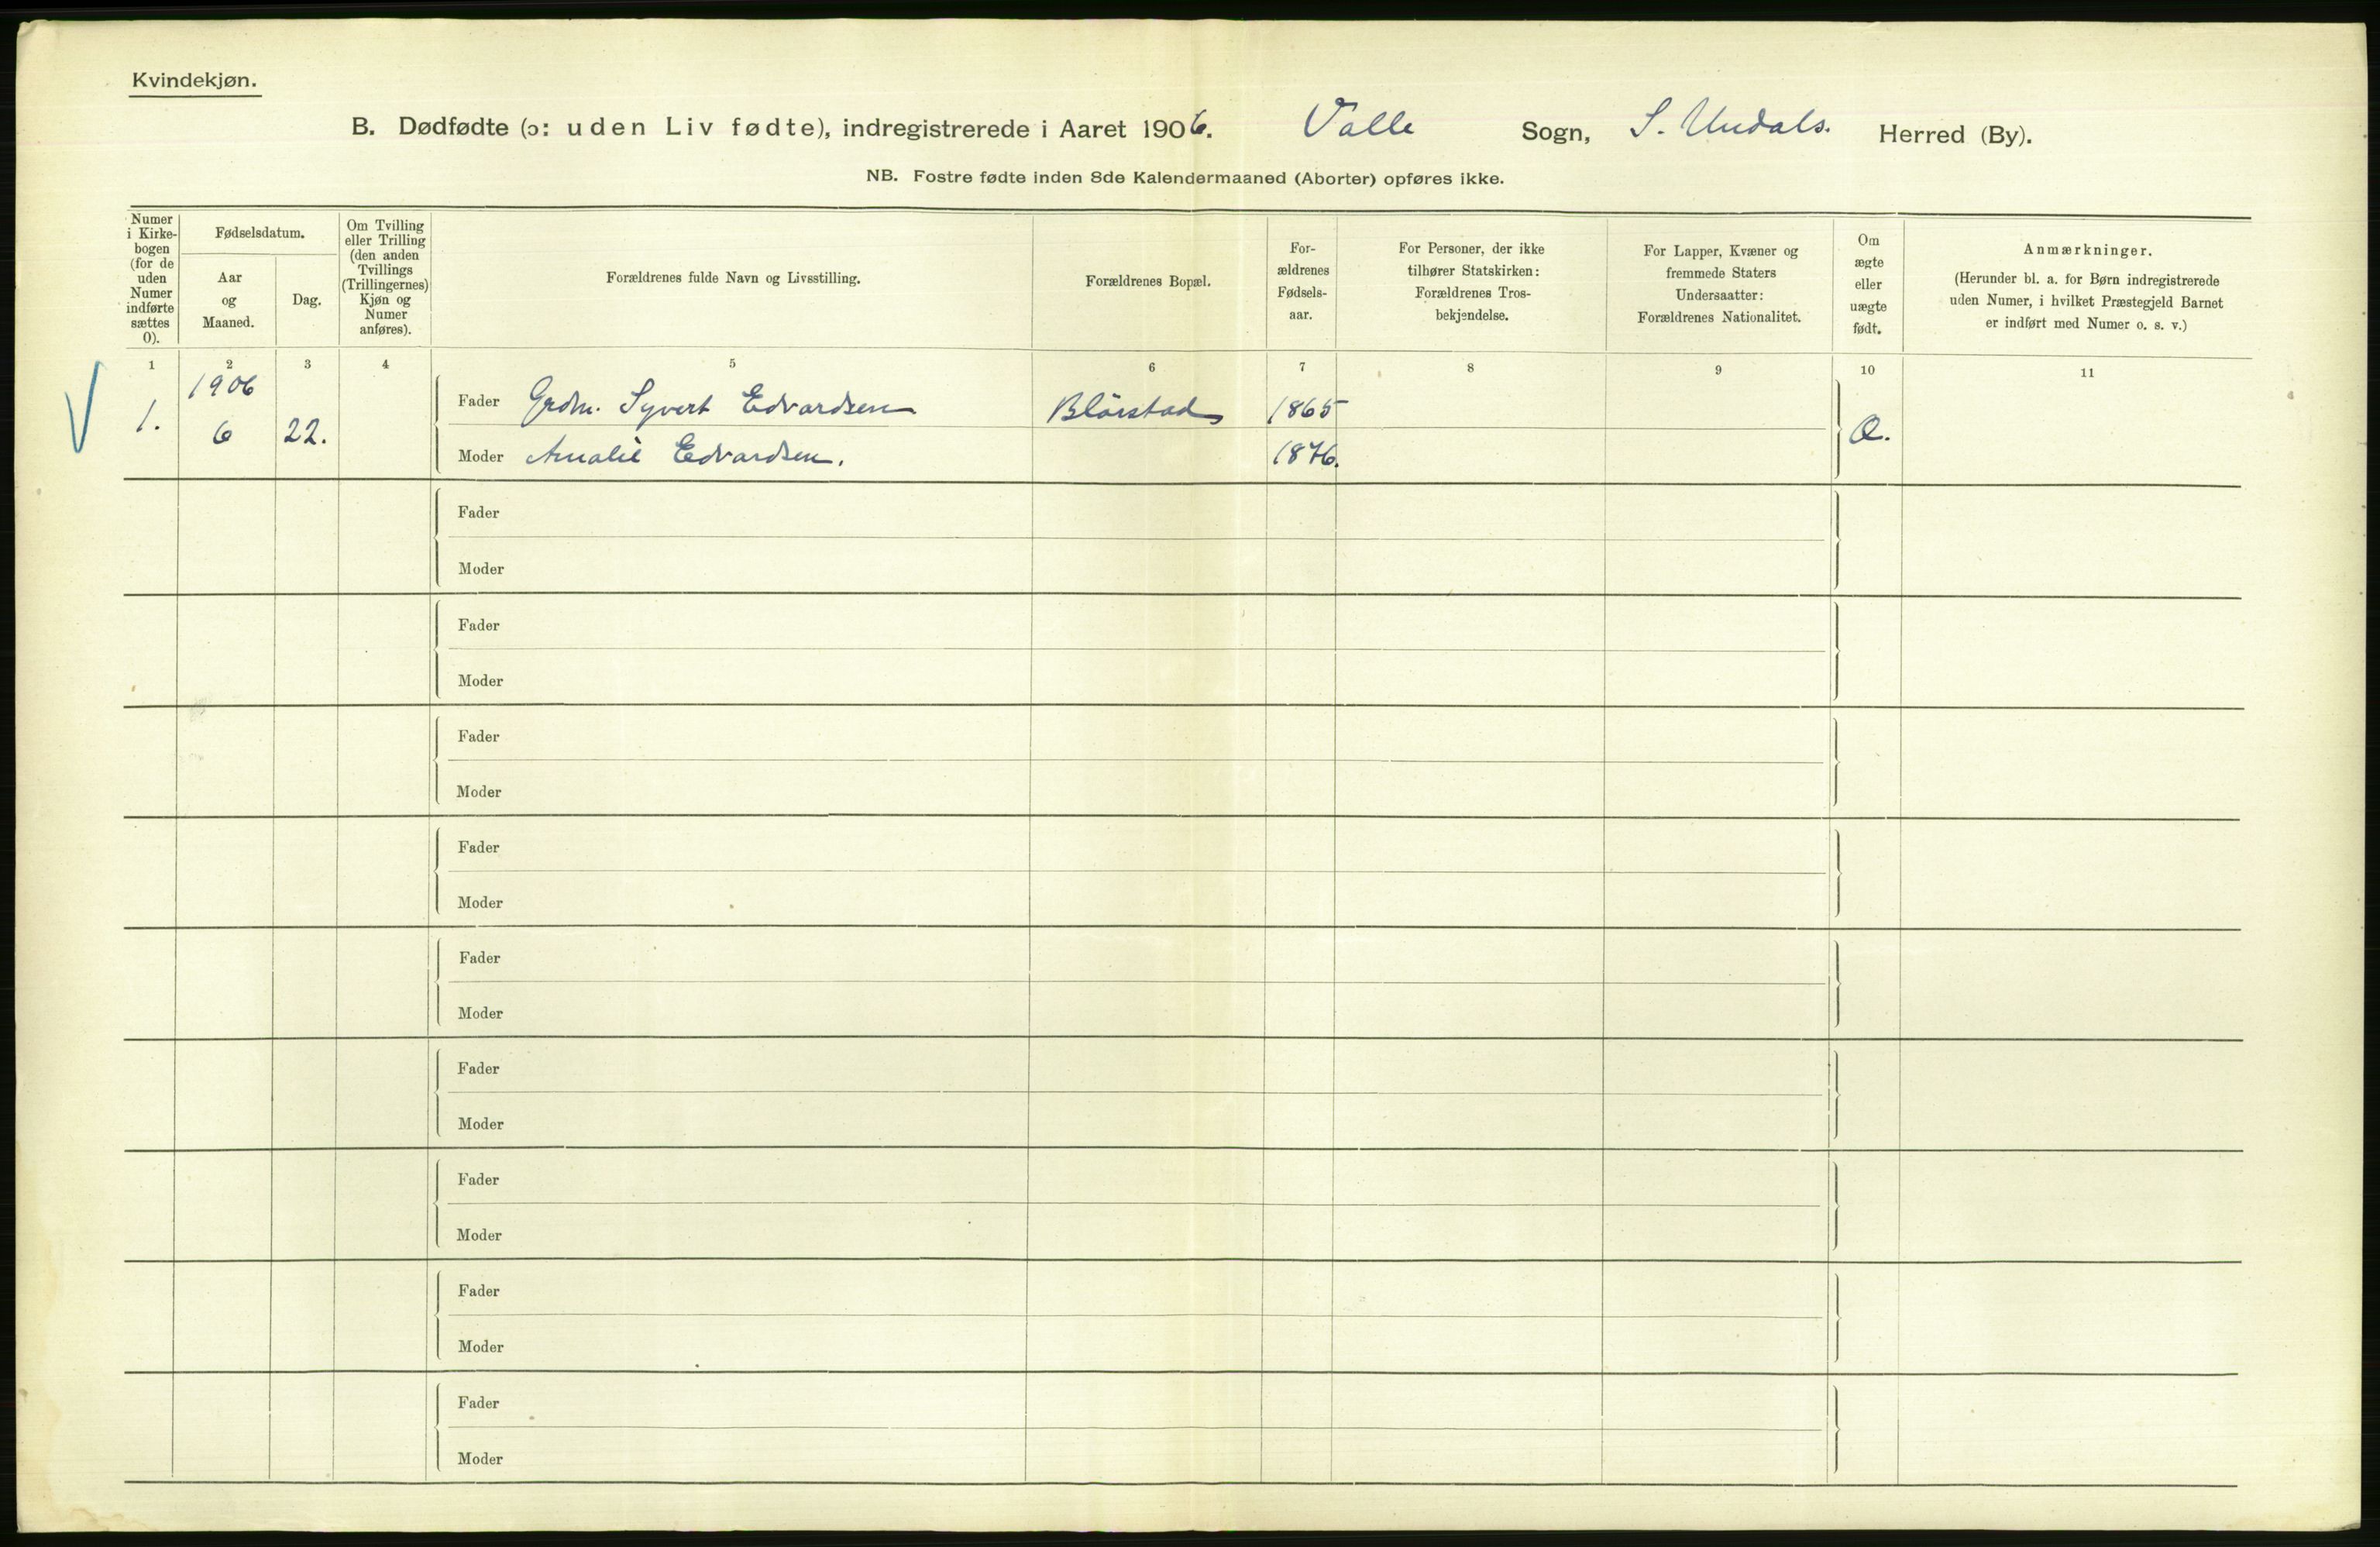 Kvindekjøn.
B. Dødfødte (ɔ: uden Liv fødte), indregistrerede i Aaret 1906. Valle Sogn, S. Undals. Herred (By).
NB. Fostre fødte inden 8de Kalendermaaned (Aborter) opføres ikke.
Numer
i Kirke-
bogen
(for de
uden
Numer
indførte
sættes
0).
Fødselsdatum.
Aar
og
Maaned.
Dag.
Om Tvilling
eller Trilling
(den anden
Tvillings
(Trillingernes)
Kjøn og
Numer
anføres).
Forældrenes fulde Navn og Livsstilling.
Forældrenes Bopæl.
For-
ældrenes
Fødsels-
aar.
For Personer, der ikke
tilhører Statskirken:
Forældrenes Tros-
bekjendelse.
For Lapper, Kvæner og
fremmede Staters
Undersaatter:
Forældrenes Nationalitet.
Om
ægte
eller
uægte
født.
Anmærkninger.
(Herunder bl. a. for Børn indregistrerede
uden Numer, i hvilket Præstegjeld Barnet
er indført med Numer o. s. v.)
1 2 3 4 5 6 7 8 9 10 11
1906
Fader Grdm. Syvert Edvardsen Blörstad 1865
1. 6 22. Æ.
Moder Amalie Edvardsen. 1876.
Fader
Moder
Fader
Moder
Fader
Moder
Fader
Moder
Fader
Moder
Fader
Moder
Fader
Moder
Fader
Moder
Fader
Moder